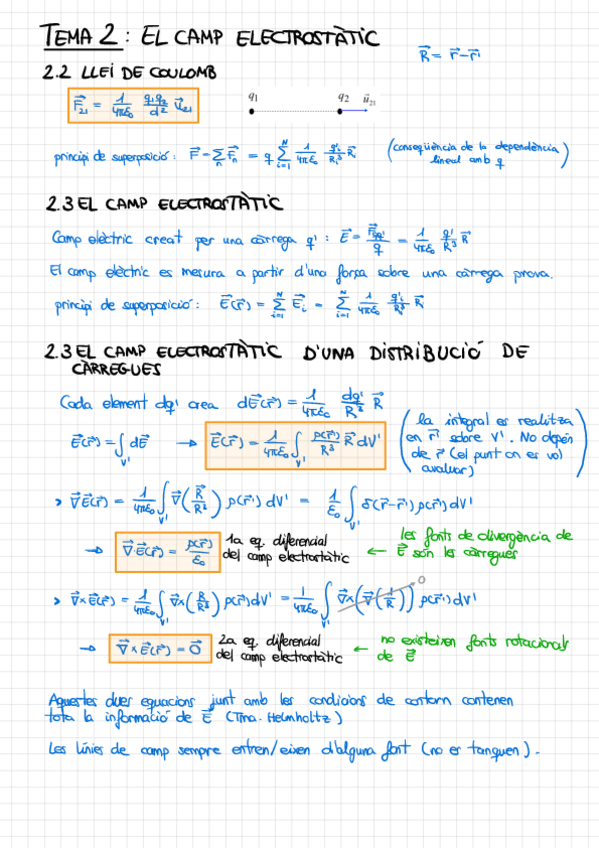 TEMA 2: EL CAMP ELECTROSTÀTIC
R⃗ = r⃗ - r⃗'
2.2 LLEI DE COULOMB
F⃗₂₁ = 1/(4πε₀) q₁q₂/d² u⃗₂₁
q₁ q₂ u⃗₂₁
principi de superposició: F⃗ = Σₙ F⃗ₙ = q Σᵢ₌₁ᴺ 1/(4πε₀) q'ᵢ/Rᵢ³ R⃗ᵢ (conseqüència de la dependència
lineal amb q)
2.3 EL CAMP ELECTROSTÀTIC
Camp elèctric creat per una càrrega q': E⃗ = F⃗qq'/q = 1/(4πε₀) q'/R³ R⃗
El camp elèctric es mesura a partir d'una força sobre una càrrega prova.
principi de superposició: E⃗(r⃗) = Σᵢ₌₁ᴺ E⃗ᵢ = Σᵢ₌₁ᴺ 1/(4πε₀) q'ᵢ/R³ R⃗
2.3 EL CAMP ELECTROSTÀTIC D'UNA DISTRIBUCIÓ DE
CÀRREGUES
Cada element dq' crea dE⃗(r⃗) = 1/(4πε₀) dq'/R³ R⃗
E⃗(r⃗) = ∫v' dE⃗ → E⃗(r⃗) = 1/(4πε₀) ∫v' ρ(r⃗')/R³ R⃗ dV'
(la integral es realitza
en r⃗' sobre V'. No depèn
de r⃗ (el punt on es vol
avaluar)
> ∇⃗E⃗(r⃗) = 1/(4πε₀) ∫v' ∇⃗(R⃗/R³) ρ(r⃗') dV' = 1/ε₀ ∫v' δ(r⃗-r⃗') ρ(r⃗') dV'
→ ∇⃗·E⃗(r⃗) = ρ(r⃗)/ε₀ 1a eq. diferencial
del camp electrostàtic
← les fonts de divergència de
E⃗ són les càrregues
> ∇⃗×E⃗(r⃗) = 1/(4πε₀) ∫v' ∇⃗×(R⃗/R³) ρ(r⃗') dV' = 1/(4πε₀) ∫v' ∇⃗×(∇⃗(1/R)) ρ(r⃗') dV' 0
→ ∇⃗×E⃗(r⃗) = 0⃗ 2a eq. diferencial
del camp electrostàtic
← no existeixen fonts rotacionals
de E⃗
Aquestes dues equacions junt amb les condicions de contorn contenen
tota la informació de E⃗ (Tma. Helmholtz)
Les línies de camp sempre entren/eixen d'alguna font (no es tanquen).